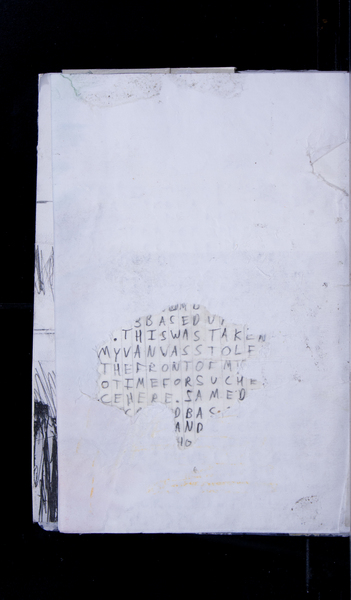 SBASEDU
.THISWASTAKEN
MYVANWASSTOLE
THEFRONTOFM
OTIMEFORSUCHE
CEHERE.SAMED
DBAS
AND
HO